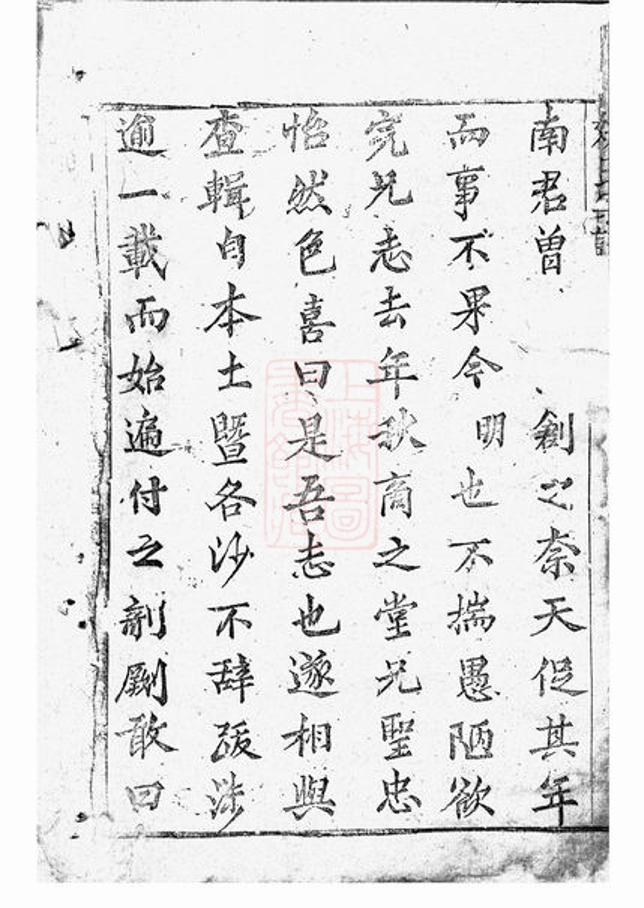 南君曾創之奈天促其年
而事不果今明也不揣愚陋欲
完兄志去年秋商之堂兄聖忠
怡然色喜曰是吾志也遂相與
查輯自本土暨各沙不辞跋涉
逾一載而始遍付之剞劂敢曰